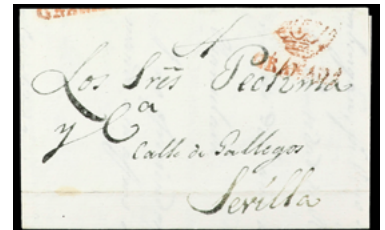 GRANADA
A
Los Sres
y Ca
Calle de Gallegos
Sevilla